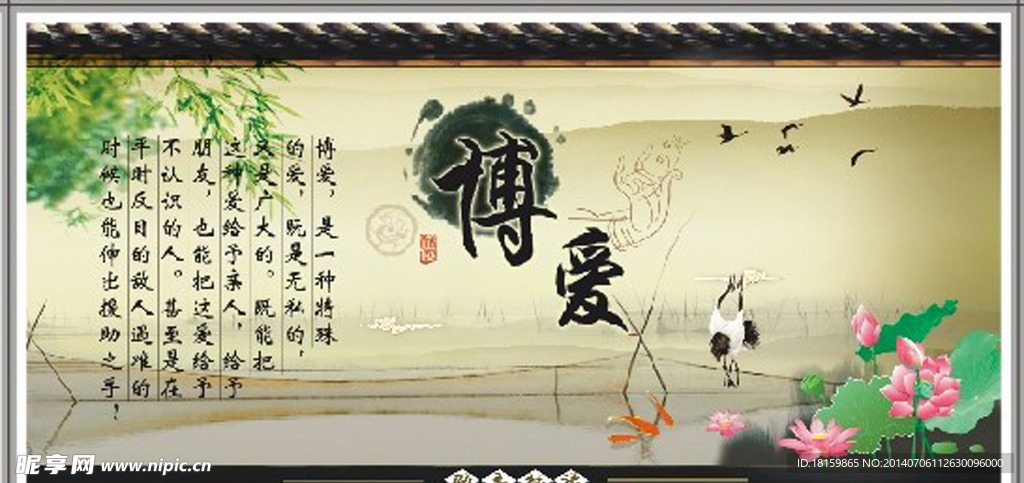 博爱
博爱，是一种特殊
的爱，既是无私的，
又是广大的。既能把
这种爱给予亲人，给予
朋友，也能把这爱给予
不认识的人。甚至是在
平时反目的敌人遇难的
时候也能伸出援助之手！
昵享网 www.nipic.cn
ID:18159865 NO:20140706112630096000